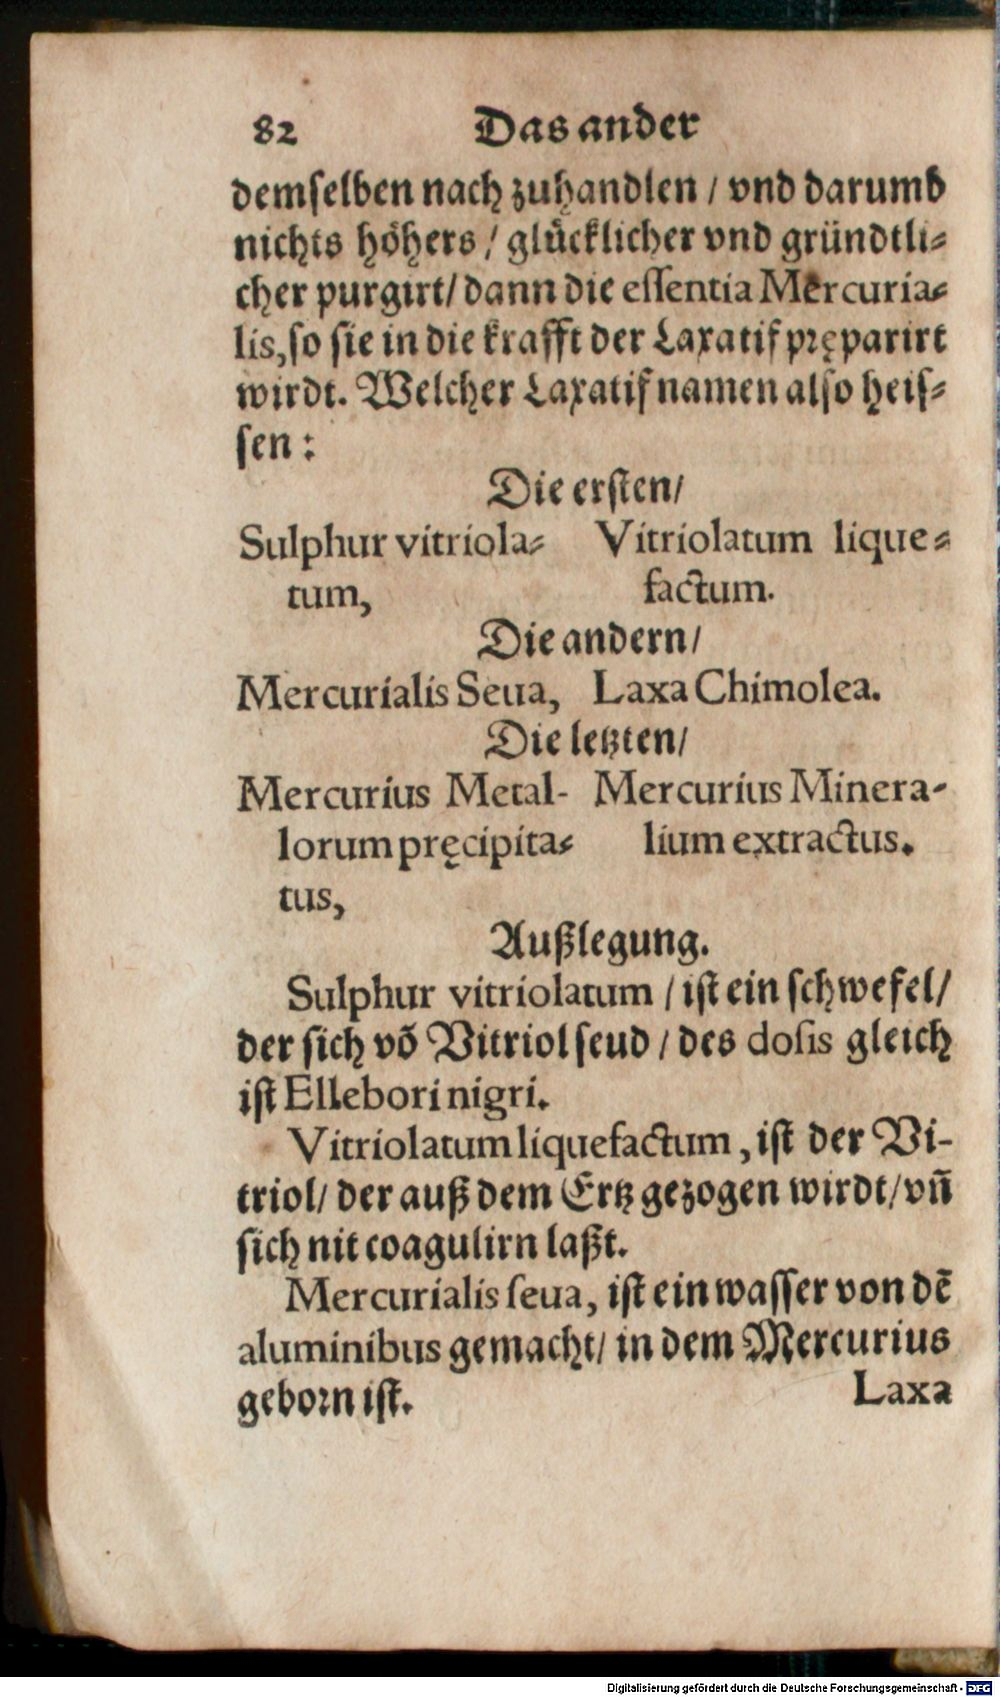 82 Das ander
demselben nach zuhandlen / vnd darumb
nichts höhers / glücklicher vnd gründtli=
cher purgirt / dann die essentia Mercuria=
lis, so sie in die krafft der Laxatif pręparirt
wirdt. Welcher Laxatif namen also heis=
sen:
Die ersten /
Sulphur vitriola= Vitriolatum lique=
tum, factum.
Die andern /
Mercurialis Seua, Laxa Chimolea.
Die letzten /
Mercurius Metal- Mercurius Minera-
lorum pręcipita= lium extractus.
tus,
Außlegung.
Sulphur vitriolatum / ist ein schwefel /
der sich võ Vitriol seud / des dosis gleich
ist Ellebori nigri.
Vitriolatum liquefactum, ist der Vi-
triol / der auß dem Ertz gezogen wirdt / vñ
sich nit coagulirn laßt.
Mercurialis seua, ist ein wasser von dẽ
aluminibus gemacht / in dem Mercurius
geborn ist. Laxa
Digitalisierung gefördert durch die Deutsche Forschungsgemeinschaft - DFG